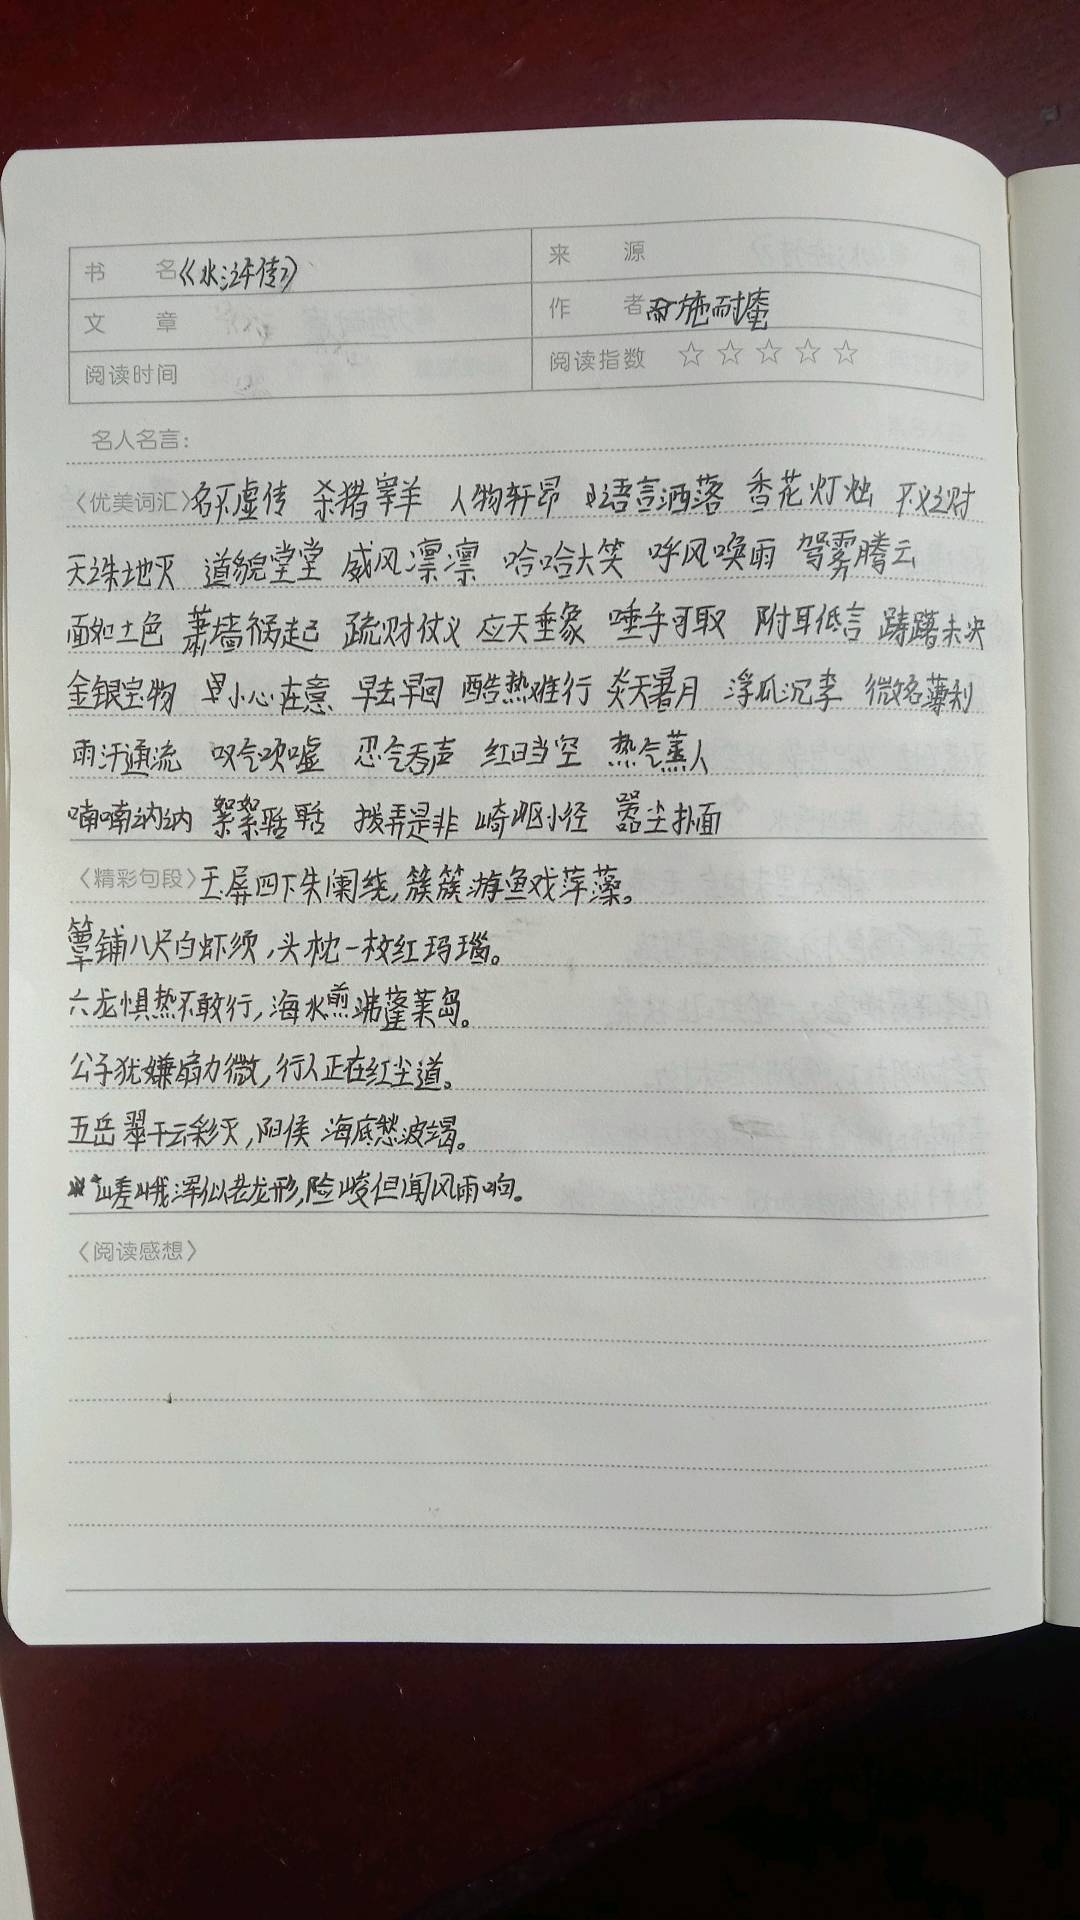 书 名 《水浒传》 来 源
文 章 作 者 施耐庵
阅读时间 阅读指数 ☆☆☆☆☆
名人名言：
〈优美词汇〉名不虚传 杀猪宰羊 人物轩昂 语言洒落 香花灯烛 不义之财
天诛地灭 道貌堂堂 威风凛凛 哈哈大笑 呼风唤雨 驾雾腾云
面如土色 萧墙祸起 疏财仗义 应天垂象 唾手可取 附耳低言 踌躇未决
金银宝物 小心在意 早去早回 酷热难行 炎天暑月 浮瓜沉李 微名薄利
雨汗通流 叹气吹嘘 忍气吞声 红日当空 热气蒸人
喃喃讷讷 絮絮聒聒 拨弄是非 崎岖小径 嚣尘扑面
〈精彩句段〉玉屏四下朱阑绕，簇簇游鱼戏萍藻。
簟铺八尺白虾须，头枕一枚红玛瑙。
六龙惧热不敢行，海水煎沸蓬莱岛。
公子犹嫌扇力微，行人正在红尘道。
五岳翠干云彩灭，阳侯海底愁波竭。
嵯峨浑似老龙形，险峻但闻风雨响。
〈阅读感想〉